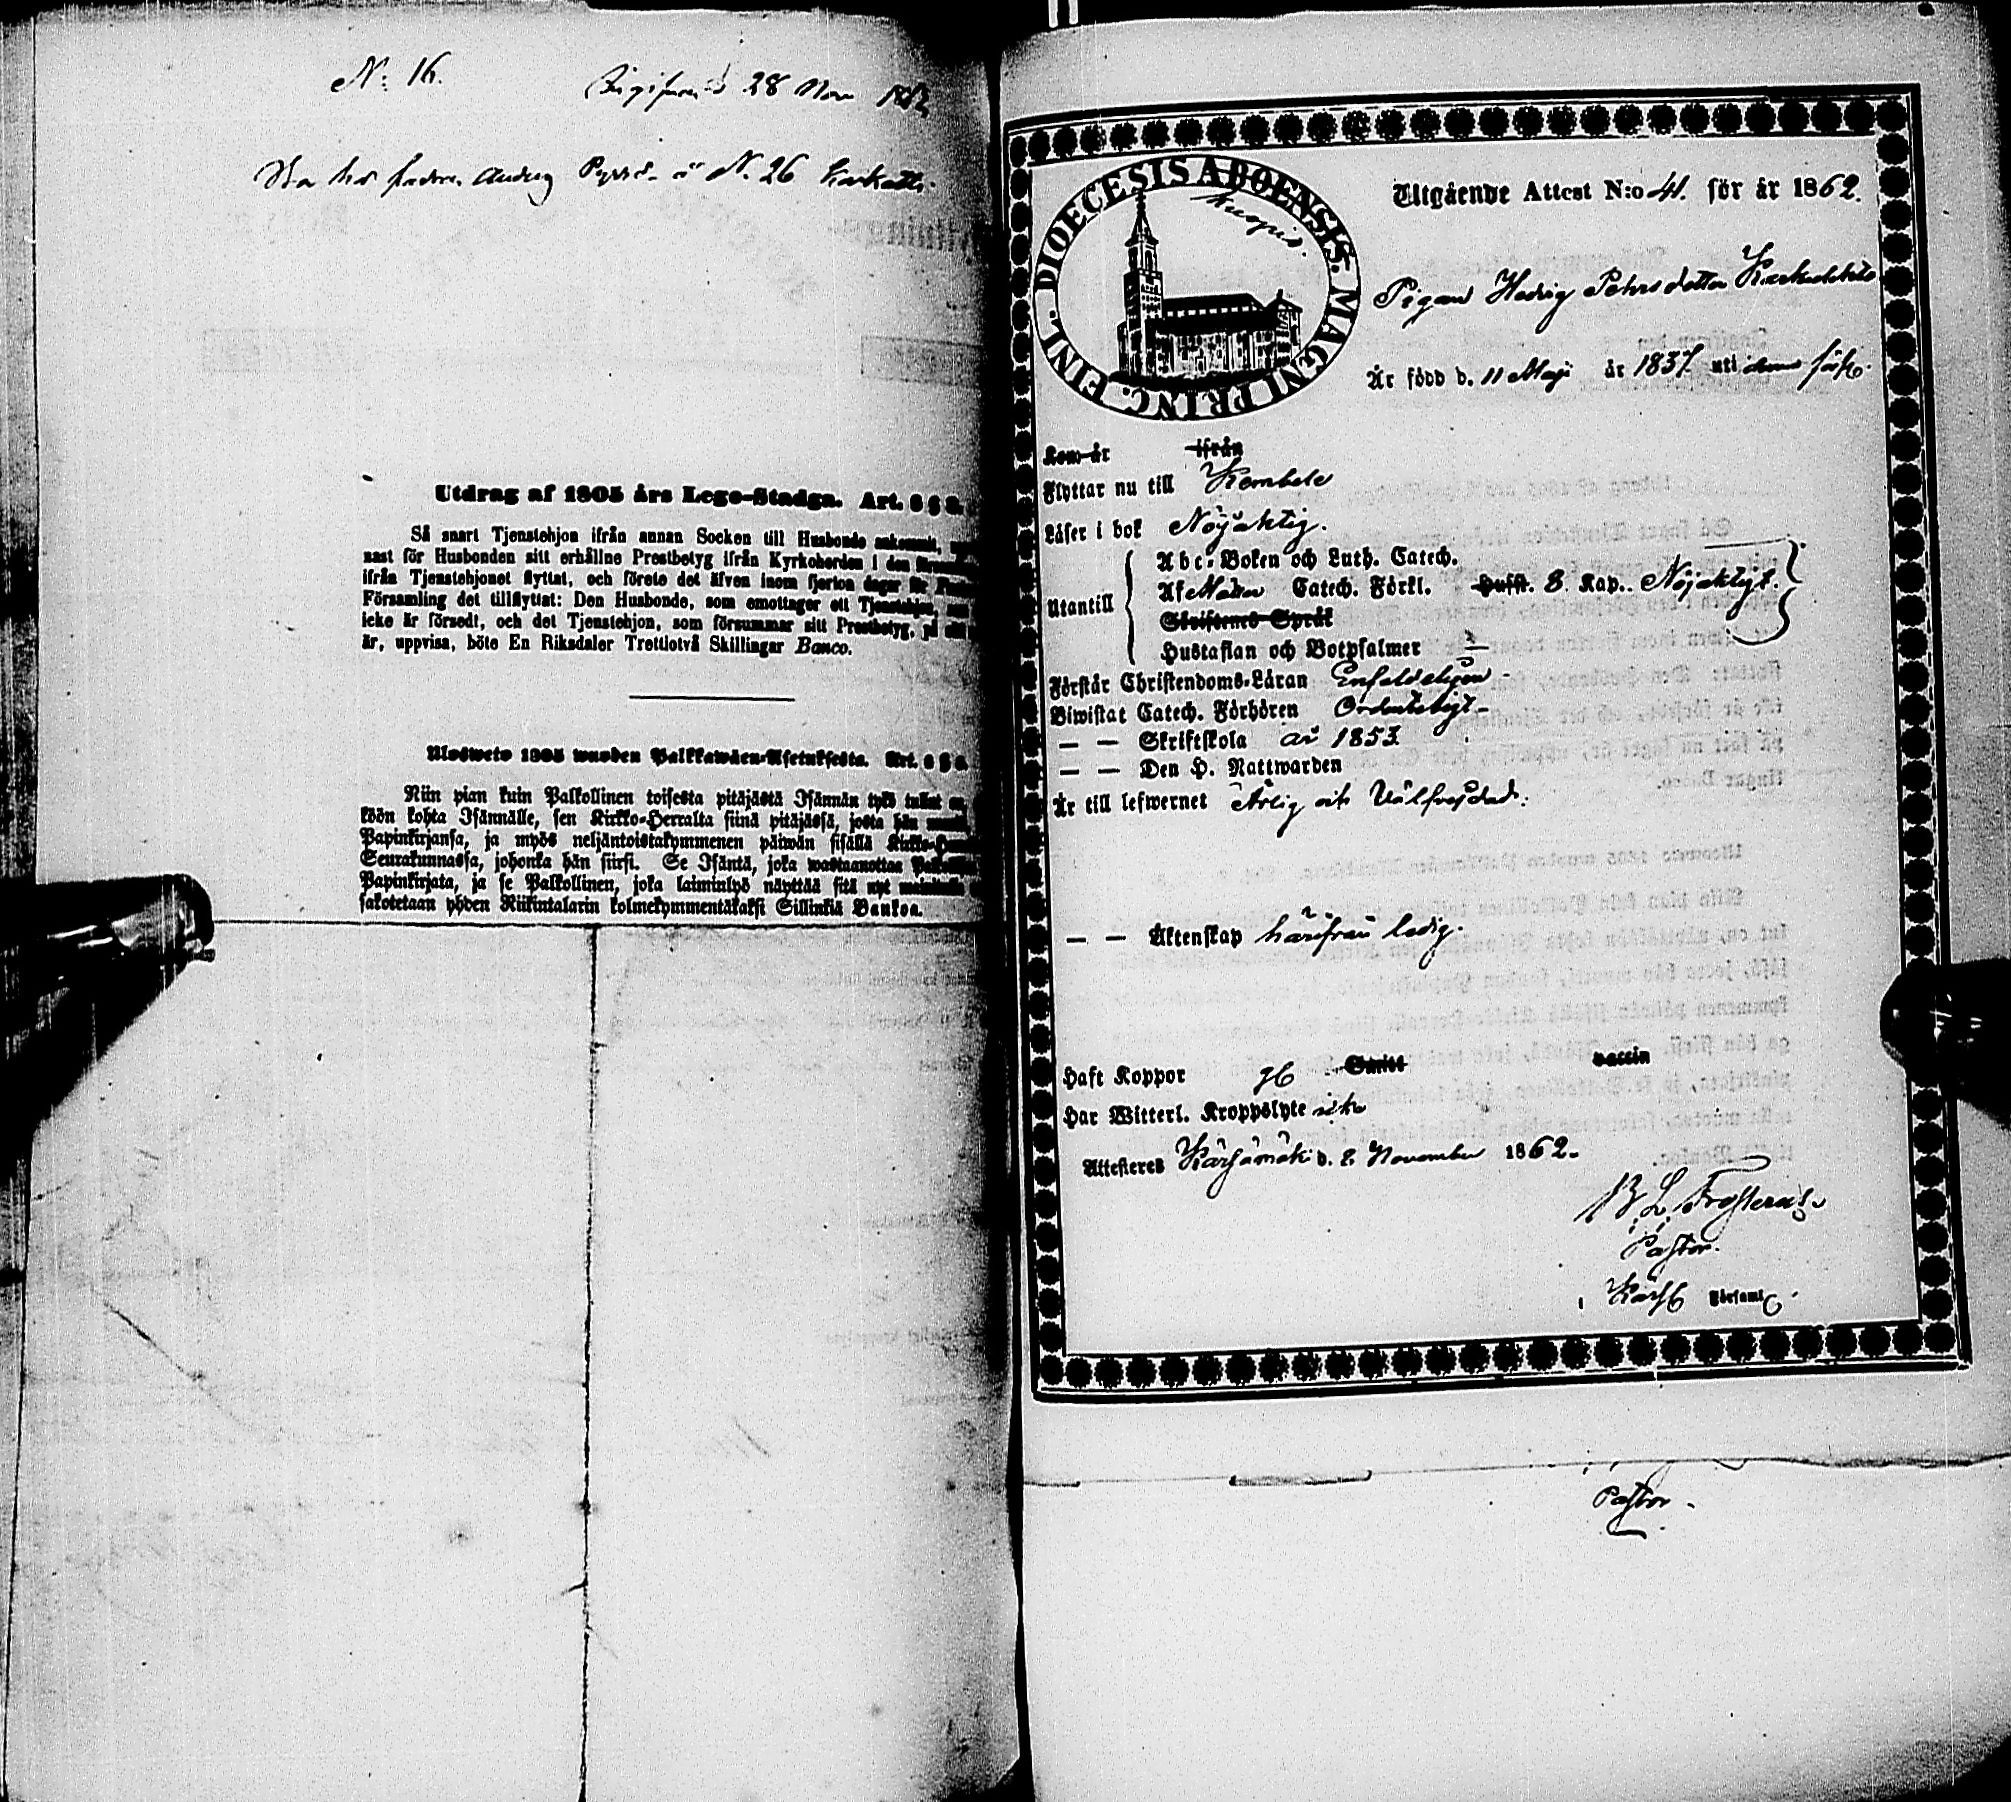 N: 16.
28 Nov
N. 26
Utdrag af 1805 års Lego-Stadga. Art. 6 § 8.
Så snart Tjenstehjon ifrån annan Socken till Husbonde ankommit,
nast för Husbonden sitt erhållne Prestbetyg ifrån Kyrkoherden i den
ifrån Tjenstehjonet flyttat, och förete det äfven inom fjorton dagar för
Församling det tillflyttat: Den Husbonde, som emottager ett Tjenstehjon,
icke är försedt, och det Tjenstehjon, som försummar sitt Prestbetyg, på
är, uppvisa, böte En Riksdaler Trettiotvå Skillingar Banco.
Ulosweto 1805 wuoden Palkkawäen-Asetuksesta. Art. 6 § 8.
Niin pian kuin Palkollinen toisesta pitäjästä Isännän tykö tullut on,
köön kohta Isännälle, sen Kirkko-Herralta siinä pitäjässä, josta hän
Papinkirjansa, ja myös neljäntoistakymmenen päiwän sisällä
Seurakunnassa, johonka hän siirsi. Se Isäntä, joka wastaanottaa
Papinkirjata, ja se Palkollinen, joka laiminlyö näyttää sitä nyt
sakotetaan yhden Riikintalarin kolmekymmentäkaksi Sillinkiä Bankoa.
FINL. DIOECESIS ABOENSIS. MAGNI PRINC.
Kuopio
Utgående Attest N:o 41. för år 1862.
Pigan Hedvig Pehrsdotter
Är född d. 11 Maji år 1837 uti
Kom år ifrån
Flyttar nu till Kembele
Läser i bok Nöjaktig.
Utantill
Abc-Boken och Luth. Catech.
Af Catech. Förkl. Husst. 8. Kap. Nöjaktigt.
Skriftenes Språk
Hustaflan och Botpsalmer
Förstår Christendoms-Läran Enfaldeligen
Biwistat Catech. Förhören Ordenteligt
— — Skriftskola år 1853.
— — Den H. Nattwarden
Är till lefwernet Ärlig och Välfrejdad.
— — Äktenskap härifrån ledig.
Haft Koppor vaccin
Har Witterl. Kroppslyte icke
Attesteras Kärsämäki d. 2 November 1862.
Pastor.
Församl.
Pastor.